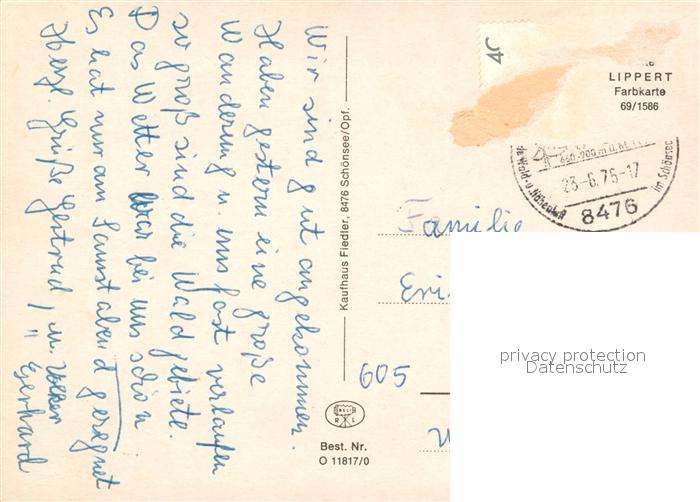 Wir sind gut angekommen.
Haben gestern eine große
Wanderung u. uns fast verlaufen
so groß sind die Waldgebiete.
Das Wetter war bei uns schön
Es hat nur am Samstabend geregnet
Herzl. Grüße Gertrud, u.
Gerhard
Kaufhaus Fiedler, 8476 Schönsee/Opf.
LIPPERT
Farbkarte
69/1586
23.-6.76-17
8476
im Schönsee
Familie
605
Best. Nr.
O 11817/0
privacy protection
Datenschutz